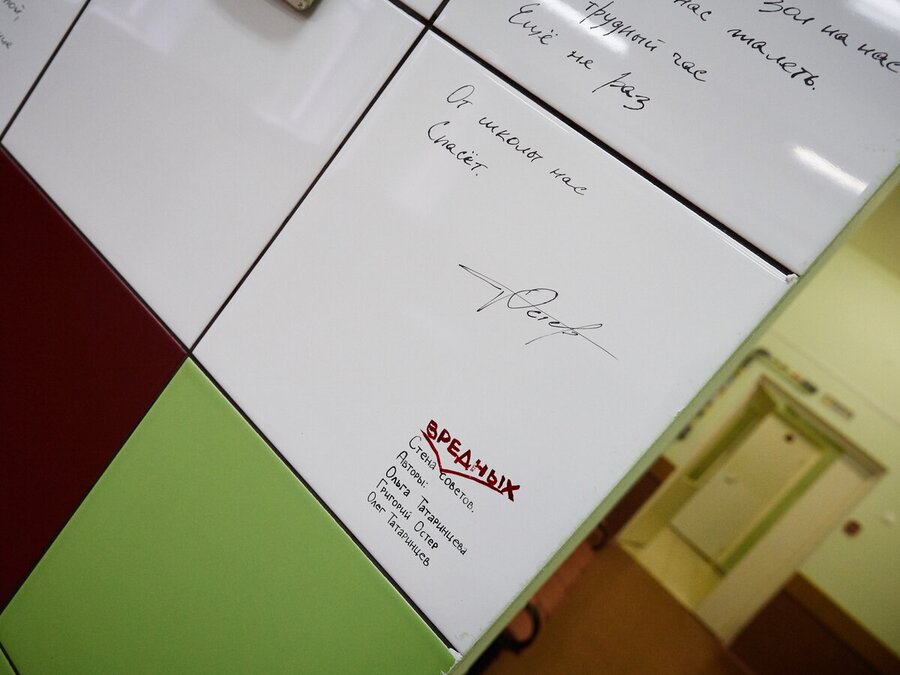 зол на нас
нас жалеть.
трудный час
Ещё не раз
От школы нас
Спасёт.
Остер
ВРЕДНЫХ
Стена советов.
Авторы:
Ольга Татаринцева
Григорий Остер
Олег Татаринцев